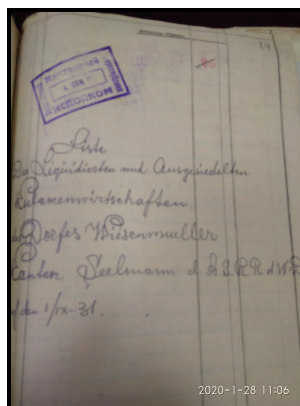 Liste
Der Liquidierten und Ausgesiedelten
Kulakenwirtschaften.
des Dorfes Wiesenmueller
Canton Seelmann d. A.S.R.R. d. W.D.
den 1/IX-31.
ИСПОЛКОМ
2020-1-28 11:06